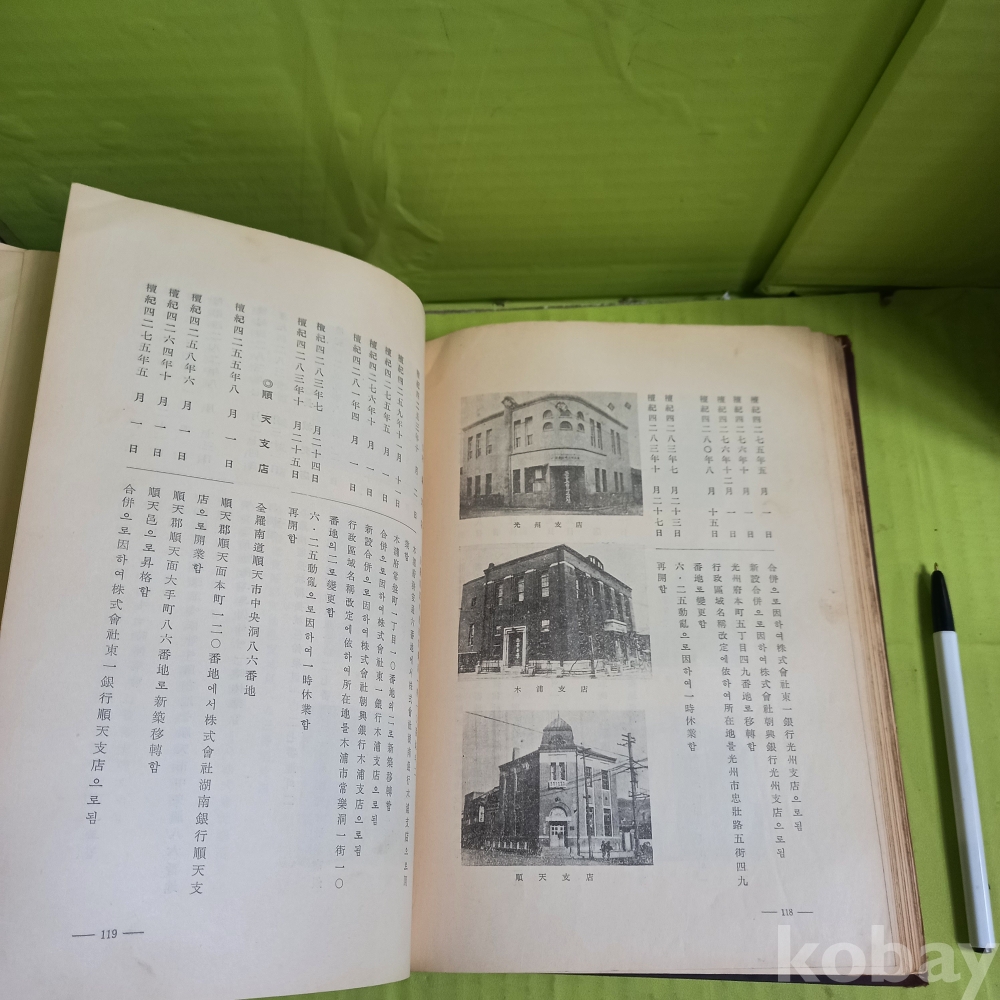 檀紀四二七五年五 月 一 日 合併으로因하여株式會社東一銀行光州支店으로됨
檀紀四二七六年十 月 一 日 新設合併으로因하여株式會社朝興銀行光州支店으로됨
檀紀四二七六年十二月 一 日 光州府本町五丁目四九番地로移轉함
檀紀四二八〇年八 月 十五 日 行政區域名稱改定에依하여所在地를光州市忠壯路五街四九
番地로變更함
檀紀四二八三年七 月二十三日 六·二五動亂으로因하여一時休業함
檀紀四二八三年十 月二十七日 再開함
光州支店
木浦支店
順天支店
— 118 —
檀紀四二五九年十一月 十一 日 木浦府常盤町一丁目一〇番地의二로新築移轉함
檀紀四二七五年五 月 一 日 合併으로因하여株式會社東一銀行木浦支店으로됨
檀紀四二七六年十 月 一 日 新設合併으로因하여株式會社朝興銀行木浦支店으로됨
檀紀四二八一年四 月 一 日 行政區域名稱改定에依하여所在地를木浦市常樂洞一街一〇
番地의二로變更함
檀紀四二八三年七 月二十四日 六·二五動亂으로因하여一時休業함
檀紀四二八三年十 月二十五日 再開함
◎順天支店 全羅南道順天市中央洞八六番地
檀紀四二五五年八 月 一 日 順天郡順天面本町一二〇番地에서株式會社湖南銀行順天支
店으로開業함
檀紀四二五八年六 月 一 日 順天郡順天面大手町八六番地로新築移轉함
檀紀四二六四年十 月 一 日 順天邑으로昇格함
檀紀四二七五年五 月 一 日 合併으로因하여株式會社東一銀行順天支店으로됨
— 119 —
kobay